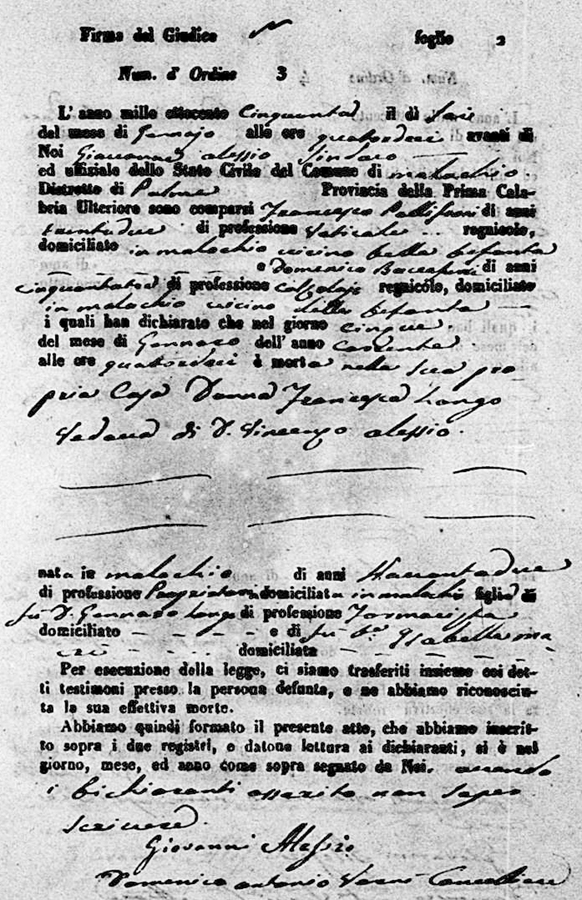 Firma del Giudice foglio 2
Num. d' Ordine 3
L' anno mille ottocento Cinquanta il dì
del mese di Gennajo alle ore quattordeci avanti di
Noi Alessio Sindaco
ed uffiziale dello Stato Civile del Comune di Molochio.
Distretto di Palme Provincia della Prima Cala-
bria Ulteriore sono comparsi Francesco di anni
trentadue di professione Vaticale regnicolo,
domiciliato in Molochio vicino della Befania
e Domenico di anni
cinquantatre di professione Calzolajo regnicolo, domiciliato
in Molochio vicino della Befania
i quali han dichiarato che nel giorno cinque
del mese di Gennaro dell' anno corrente
alle ore quattordeci è morta nella sua pro-
pria Casa Donna Francesca Longo
Vedova di D. Vincenzo Alessio.
nata in Molochio di anni
di professione Proprietaria domiciliata in Molochio figlia di
fu D. Gennaro Longo di professione
domiciliato e di fu Isabella
domiciliata
Per esecuzione della legge, ci siamo trasferiti insieme coi det-
ti testimoni presso la persona defunta, e ne abbiamo riconosciu-
ta la sua effettiva morte.
Abbiamo quindi formato il presente atto, che abbiamo inscrit-
to sopra i due registri, e datone lettura ai dichiaranti, si è nel
giorno, mese, ed anno come sopra segnato da Noi. avendo
i Dichiaranti asserito non saper
scrivere.
Giovanni Alessio
Domenico Antonio Cancelliere